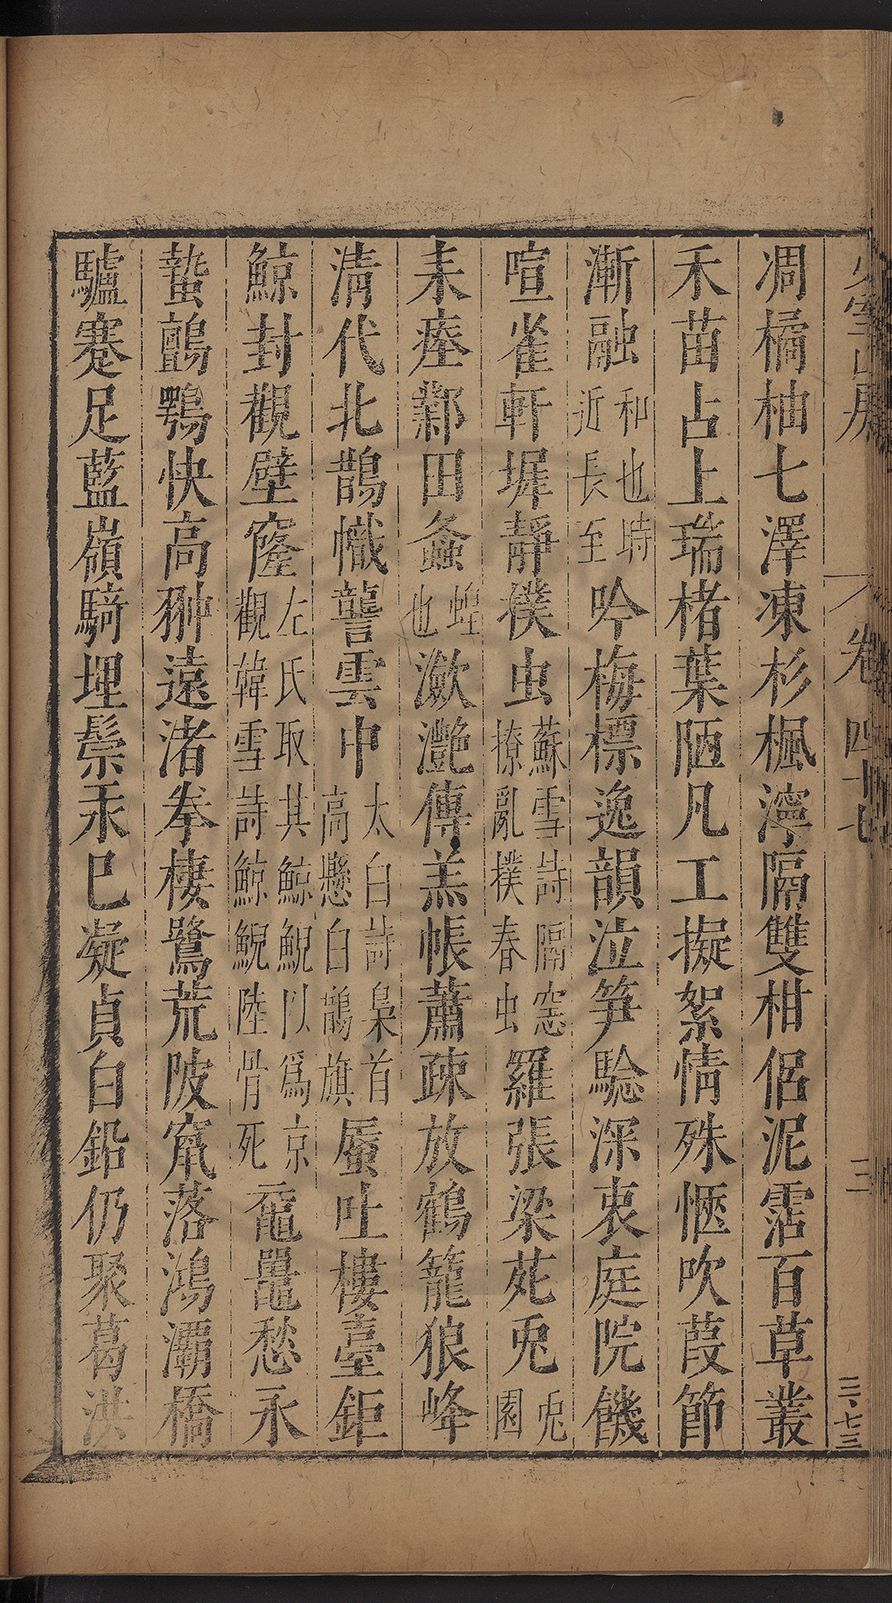 少室山房
卷四十七
三
三、七三
凋橘柚七澤凍杉楓濘隔雙柑侶泥霑百草叢
禾苗占上瑞楮葉陋凡工擬絮情殊愜吹葭節
漸融
和也時
近長至
吟梅標逸韻泣笋騐深衷庭院饑
喧雀軒墀靜撲虫
蘇雪詩隔窓
撩亂撲春虫
羅張梁苑兎
兎
園
耒瘞鄴田螽
蝗
也
瀲灔傳羔帳蕭疎放鶴籠狼峰
清代北鵲幟讋雲中
太白詩梟首
高懸白鵲旗
蜃吐樓臺鉅
鯨封觀壁窿
左氏取其鯨鯢以爲京
觀韓雪詩鯨鯢陸骨死
黿鼉愁永
蟄鸇鶚快高翀遠渚拳棲鷺荒陂窊落鴻灞橋
驢蹇足藍嶺騎埋鬃汞巳凝貞白鉛仍聚葛洪